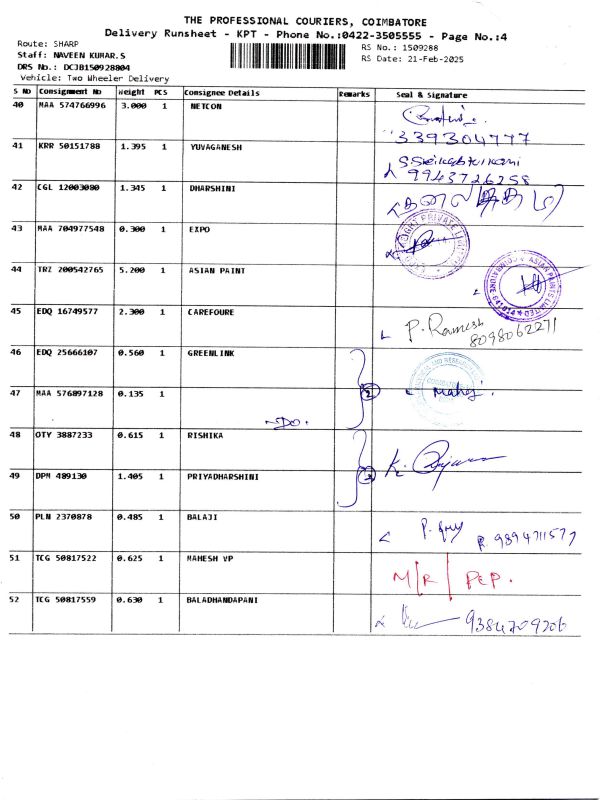 THE PROFESSIONAL COURIERS, COIMBATORE
Delivery Runsheet - KPT - Phone No.:0422-3505555 - Page No.:4
Route: SHARP
RS No.: 1509288
Staff: NAVEEN KUMAR.S
RS Date: 21-Feb-2025
DRS No.: DCJB150928804
Vehicle: Two Wheeler Delivery
S No Consignment No Weight PCS Consignee Details Remarks Seal & Signature
40 MAA 574766996 3.000 1 NETCON
3393047777
41 KRR 50151788 1.395 1 YUVAGANESH
9943726258
42 CGL 12003080 1.345 1 DHARSHINI
43 MAA 704977548 0.300 1 EXPO
PRIVATE LIMITED
44 TRZ 200542765 5.200 1 ASIAN PAINT
ASIAN PAINTS LIMITED
COIMBATORE 641014
45 EDQ 16749577 2.300 1 CAREFOURE P. Ramesh
8098062271
46 EDQ 25666107 0.560 1 GREENLINK
47 MAA 576897128 0.135 1 -DO- 2
48 OTY 3887233 0.615 1 RISHIKA
49 DPM 489130 1.405 1 PRIYADHARSHINI
50 PLN 2370878 0.485 1 BALAJI
9894711577
51 TCG 50817522 0.625 1 MAHESH VP M/R PEP.
52 TCG 50817559 0.630 1 BALADHANDAPANI 9384709206